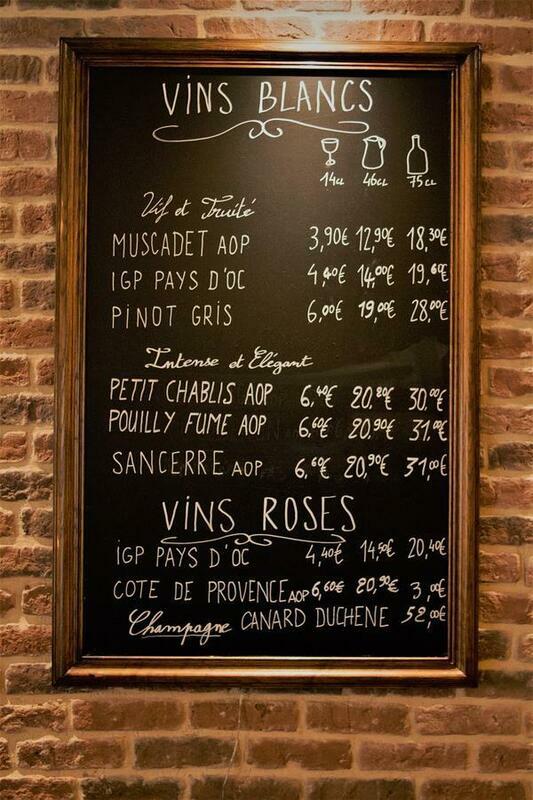 VINS BLANCS
14CL 46CL 75CL
Vif et Fruité
MUSCADET AOP 3,90€ 12,90€ 18,30€
IGP PAYS D'OC 4,40€ 14,00€ 19,60€
PINOT GRIS 6,00€ 19,00€ 28,00€
Intense et Elégant
PETIT CHABLIS AOP 6,40€ 20,80€ 30,00€
POUILLY FUME AOP 6,60€ 20,90€ 31,00€
SANCERRE AOP 6,60€ 20,90€ 31,00€
VINS ROSES
IGP PAYS D'OC 4,40€ 14,50€ 20,40€
COTE DE PROVENCE AOP 6,60€ 20,90€ 3,00€
Champagne CANARD DUCHENE 52,00€